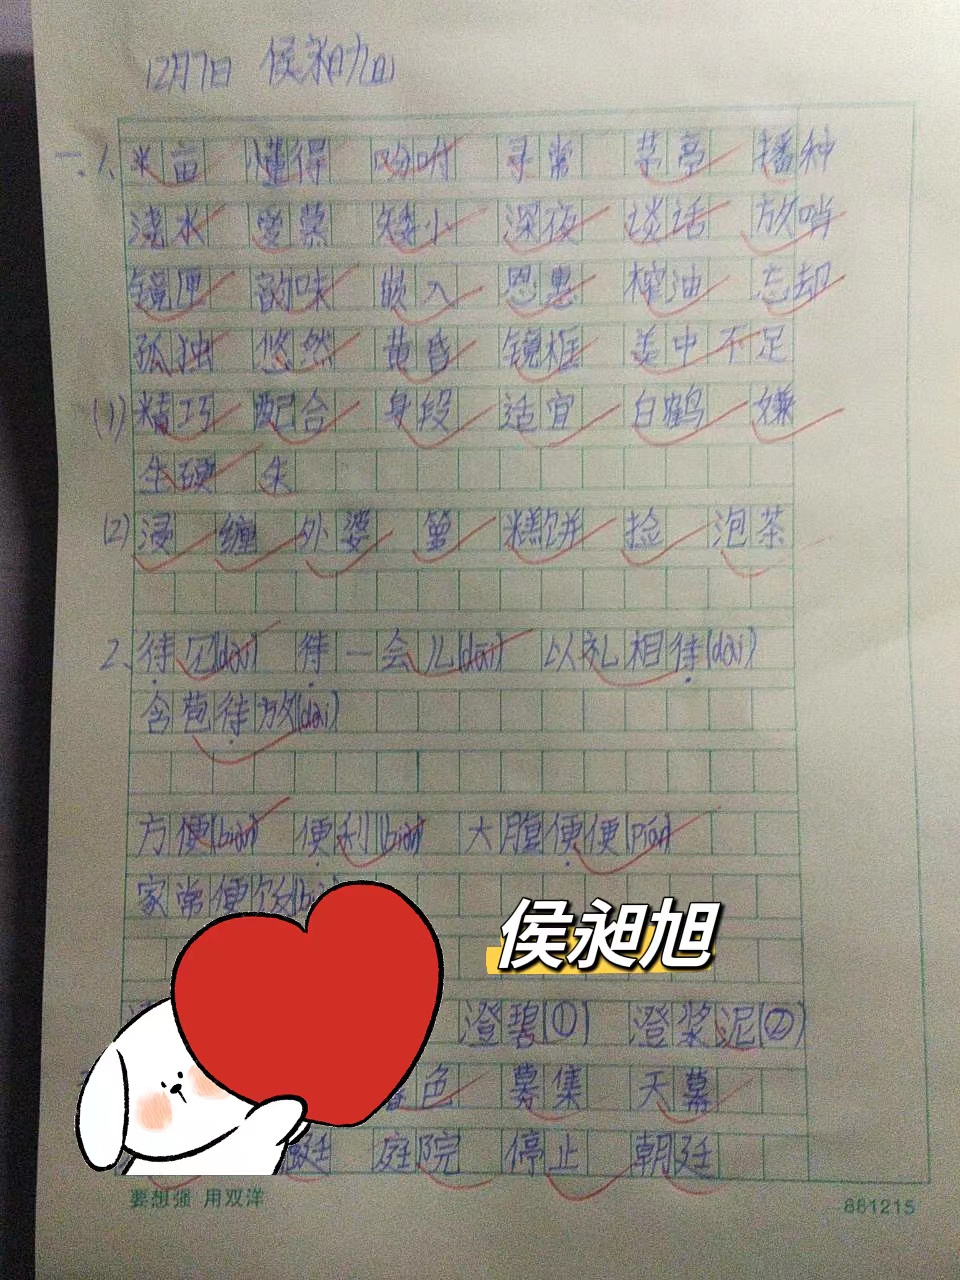 12月7日 侯昶旭
一.1、半亩 懂得 吩咐 寻常 茅亭 播种
浇水 爱慕 矮小 深夜 谈话 放哨
镜匣 韵味 嵌入 恩惠 榨油 忘却
孤独 悠然 黄昏 镜框 美中不足
(1)精巧 配合 身段 适宜 白鹤 嫌
生硬 朱
(2)浸 缠 外婆 箩 糕饼 捡 泡茶
2、待见(dài) 待一会儿(dāi) 以礼相待(dài)
含苞待放(dài)
方便(biàn) 便利(biàn) 大腹便便(pián)
家常便饭
侯昶旭
澄碧(①) 澄浆泥(②)
色 募集 天幕
庭院 停止 朝廷
要想强 用双洋
881215